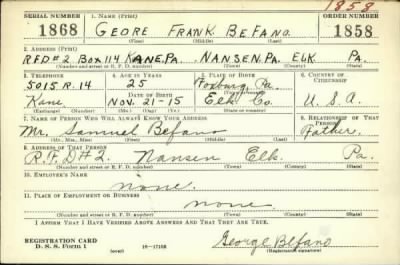 1858
SERIAL NUMBER 1. NAME (Print) ORDER NUMBER
1868 GEORE FRANK BEFANO 1858
(First) (Middle) (Last)
2. ADDRESS (Print)
RFD#2 BOX 114 KANE, PA. NANSEN, PA. ELK PA.
(Number and street or R. F. D. number) (Town) (County) (State)
3. TELEPHONE 4. AGE IN YEARS 5. PLACE OF BIRTH 6. COUNTRY OF CITIZENSHIP
5015 R. 14 25 Pa.
DATE OF BIRTH (Town or county)
Kane Nov. 21-15 Elk Co. U. S. A.
(Exchange) (Number) (Mo.) (Day) (Yr.) (State or country)
7. NAME OF PERSON WHO WILL ALWAYS KNOW YOUR ADDRESS 8. RELATIONSHIP OF THAT PERSON
Mr. Samuel Befano Father
(Mr., Mrs., Miss) (First) (Middle) (Last)
9. ADDRESS OF THAT PERSON
R. F. D#2. Nansen Elk. Pa.
(Number and street or R. F. D. number) (Town) (County) (State)
10. EMPLOYER'S NAME
none.
11. PLACE OF EMPLOYMENT OR BUSINESS
none
(Number and street or R. F. D. number) (Town) (County) (State)
I AFFIRM THAT I HAVE VERIFIED ABOVE ANSWERS AND THAT THEY ARE TRUE.
REGISTRATION CARD
D. S. S. Form 1 (over) George Befano
(Registrant's signature)